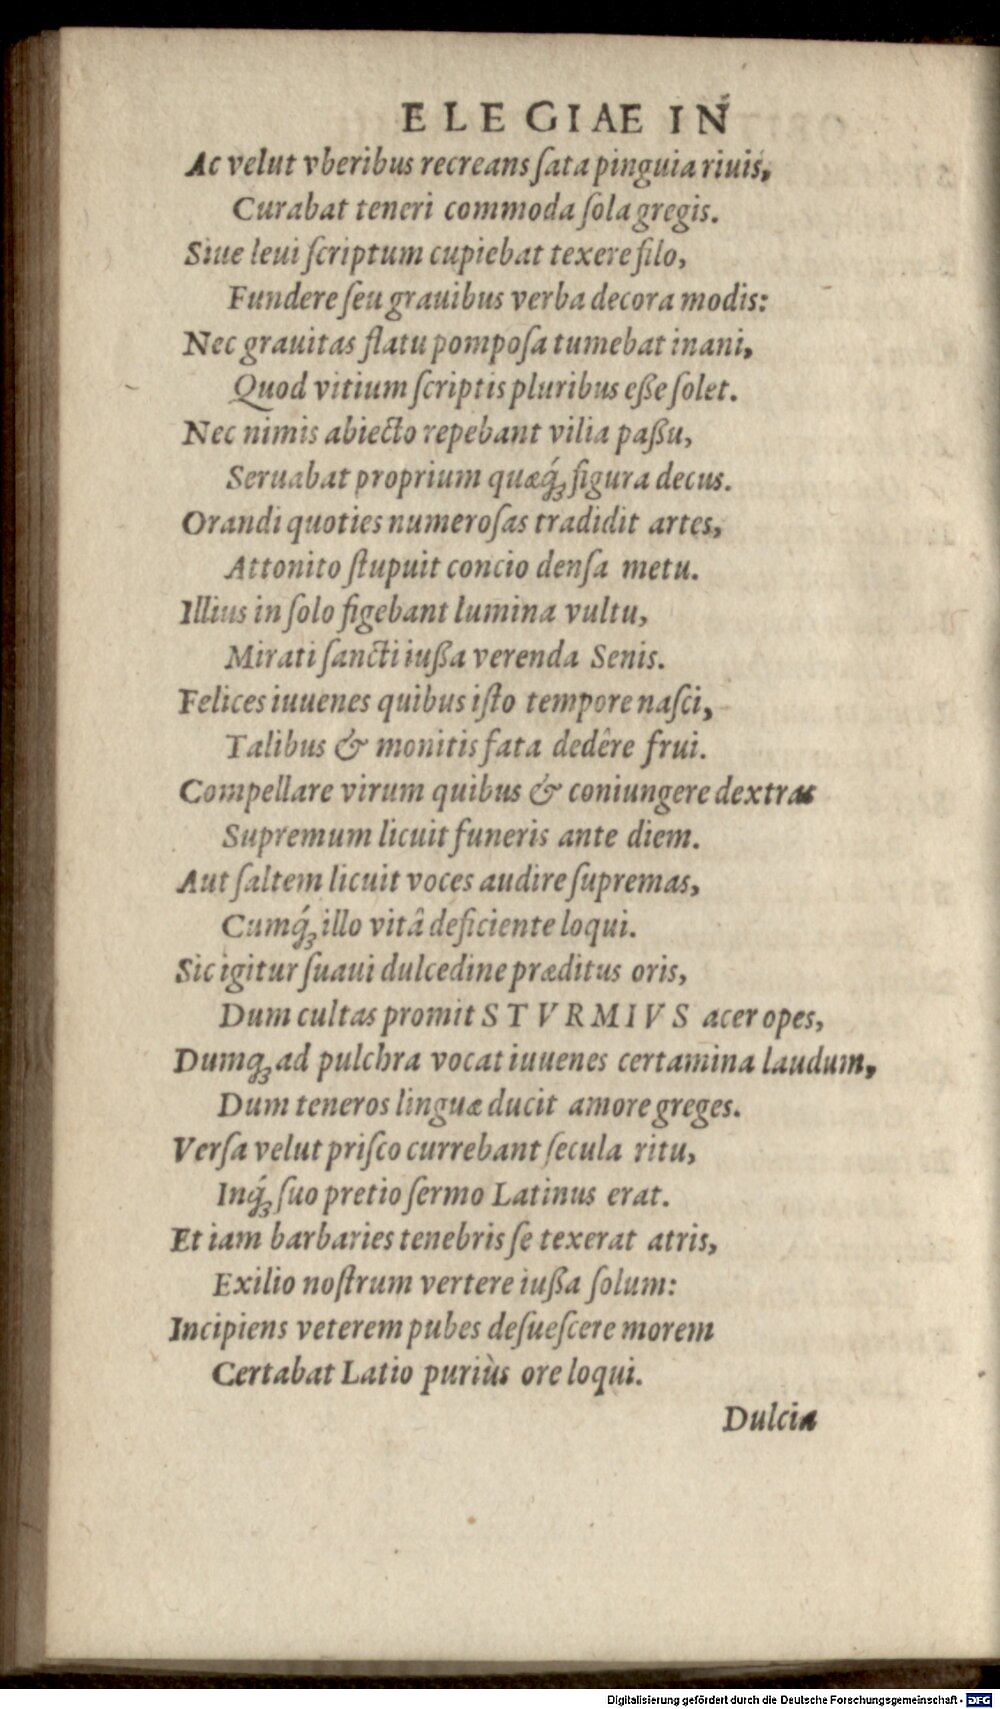 ELEGIAE IN
Ac velut vberibus recreans ſata pinguia riuis,
Curabat teneri commoda ſola gregis.
Siue leui ſcriptum cupiebat texere filo,
Fundere ſeu grauibus verba decora modis:
Nec grauitas flatu pompoſa tumebat inani,
Quod vitium ſcriptis pluribus eße ſolet.
Nec nimis abiecto repebant vilia paßu,
Seruabat proprium quæq́ꝫ figura decus.
Orandi quoties numeroſas tradidit artes,
Attonito ſtupuit concio denſa metu.
Illius in ſolo figebant lumina vultu,
Mirati ſancti iußa verenda Senis.
Felices iuuenes quibus iſto tempore naſci,
Talibus & monitis fata dedêre frui.
Compellare virum quibus & coniungere dextras
Supremum licuit funeris ante diem.
Aut ſaltem licuit voces audire ſupremas,
Cumq́ꝫ illo vitâ deficiente loqui.
Sic igitur ſuaui dulcedine præditus oris,
Dum cultas promit STVRMIVS acer opes,
Dumqꝫ ad pulchra vocat iuuenes certamina laudum,
Dum teneros linguæ ducit amore greges.
Verſa velut priſco currebant ſecula ritu,
Inq́ꝫ ſuo pretio ſermo Latinus erat.
Et iam barbaries tenebris ſe texerat atris,
Exilio noſtrum vertere iußa ſolum:
Incipiens veterem pubes deſueſcere morem
Certabat Latio puriùs ore loqui.
Dulcia
Digitalisierung gefördert durch die Deutsche Forschungsgemeinschaft - DFG